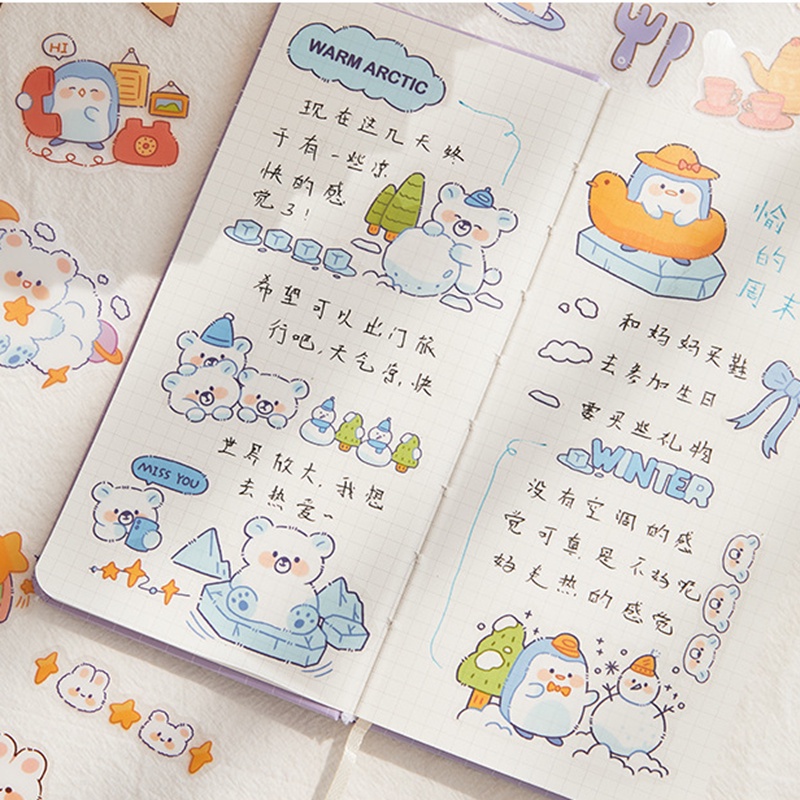 HI
WARM ARCTIC
现在这几天终
于有一些凉
快的感
觉了!
希望可以出门旅
行吧,天气凉快
世界放大,我想
去热爱~
MISS YOU
愉
的
周末
和妈妈买鞋
去参加生日
要买些礼物
WINTER
没有空调的感
觉可真是不好呢
好走热的感觉